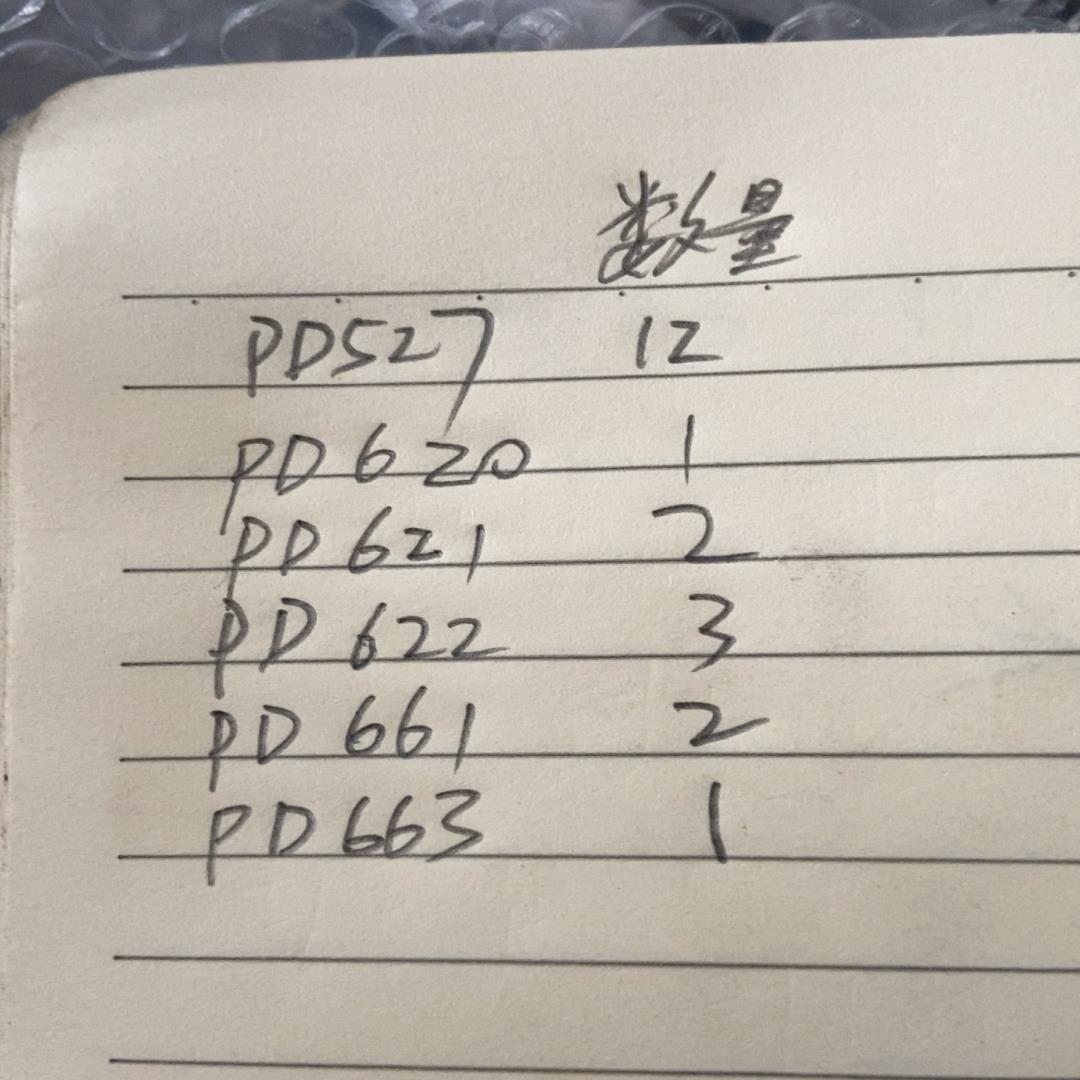 数量
PD527 12
PD620 1
PD621 2
PD622 3
PD661 2
PD663 1